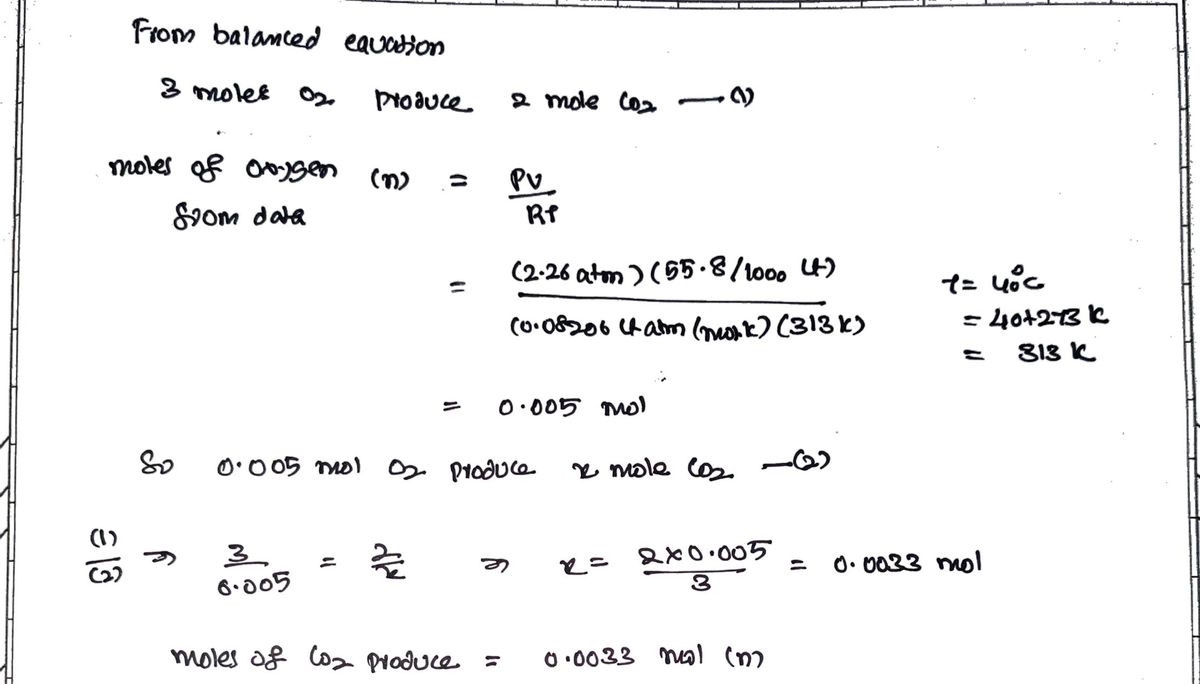 From balanced equation
3 moles O2 produce 2 mole CO2 — (1)
moles of oxygen (n) = PV / RT
from data
= (2.26 atm) (55.8/1000 Lt) / (0.08206 Lt atm/mol k) (313 k)
t = 40°C
= 40+273 k
= 313 k
= 0.005 mol
So 0.005 mol O2 produce x mole CO2 — (2)
(1)/(2) ⇒ 3/0.005 = 2/x ⇒ x = 2×0.005/3 = 0.0033 mol
moles of CO2 produce = 0.0033 mol (n)